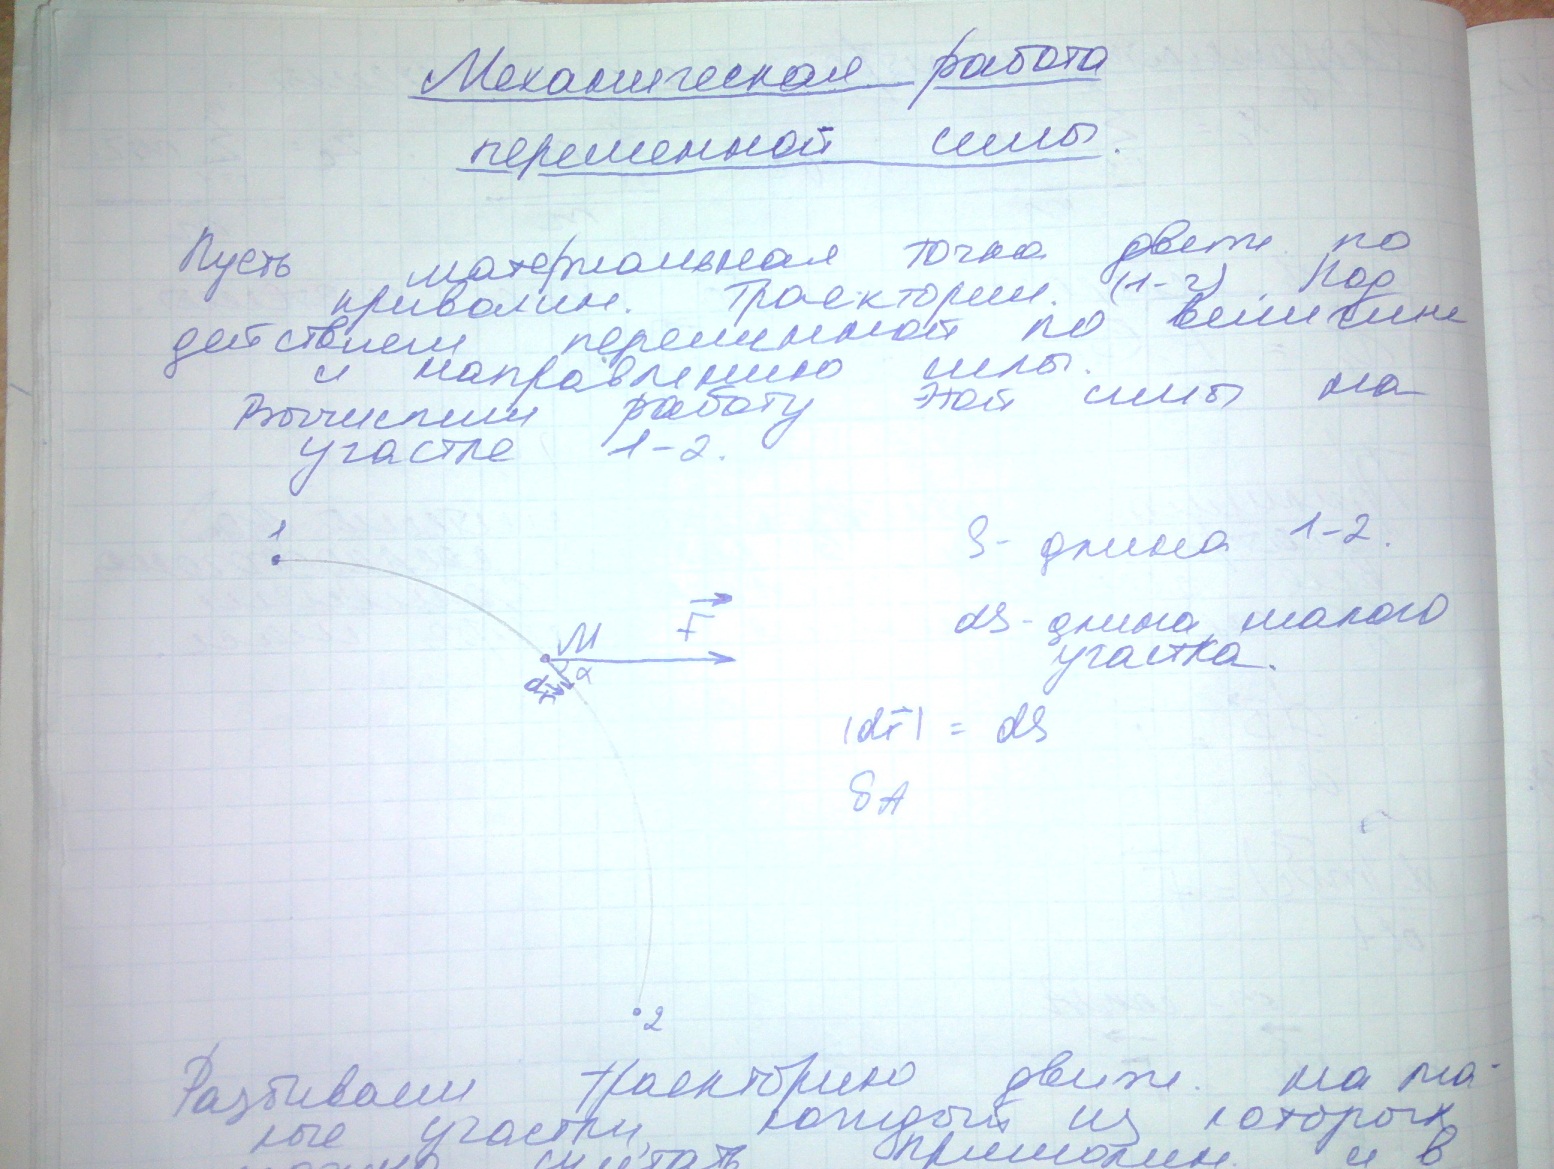 Механическая работа
переменной силы.
Пусть материальная точка движ. по
криволин. траектории. (1-2). Под
действием переменной по величине
и направлению силы.
Вычислим работу этой силы на
участке 1-2.
1
S- длина 1-2.
dS- длина малого
участка.
M
F⃗
α
dr⃗
|dr⃗| = dS
δA
2
Разбиваем траекторию движ. на ма-
лые участки, каждый из которых
можно считать прямолин. и в